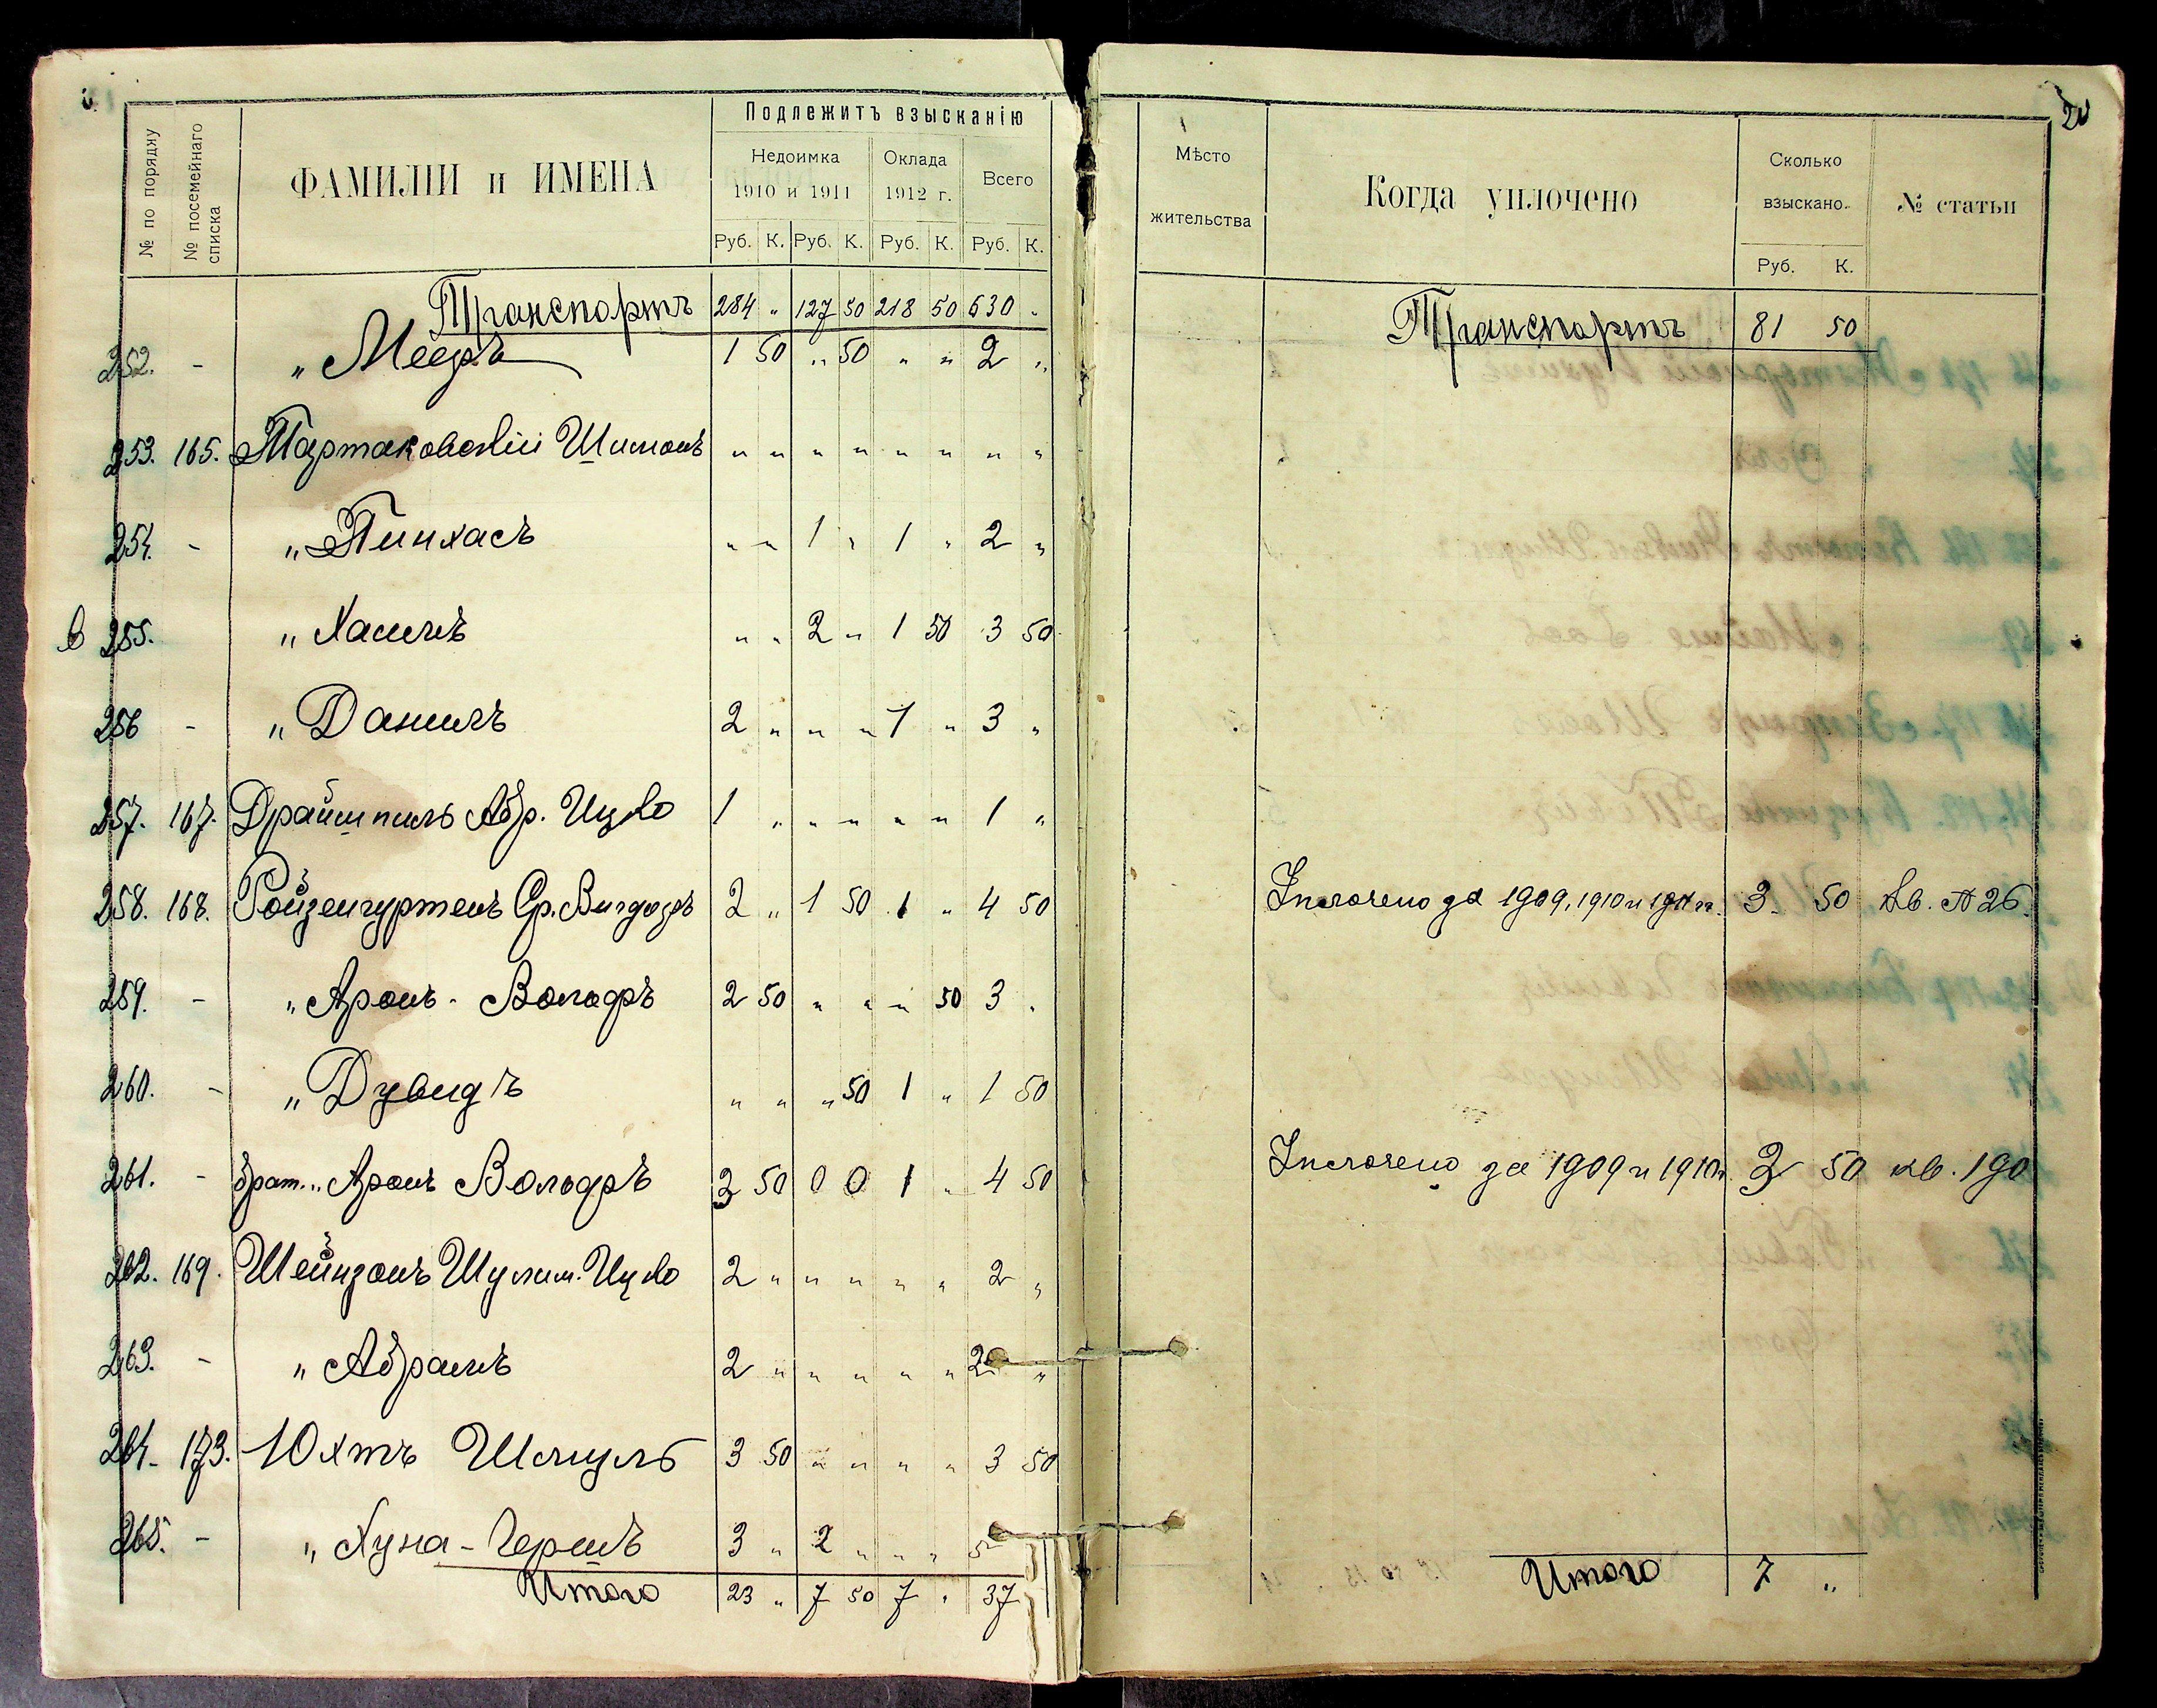 № по порядку
№ посемейнаго списка
ФАМИЛІИ и ИМЕНА
Подлежитъ взысканію
Недоимка
1910 и 1911
Оклада
1912 г.
Всего
Руб. К. Руб. К. Руб. К. Руб. К.
Транспортъ 284 „ 127 50 218 50 630 „
252. - „ Мееръ 1 50 „ 50 „ „ 2 „
253. 165. Тартаковскій Шимонъ „ „ „ „ „ „ „ „
254. - „ Пинхасъ „ „ 1 „ 1 „ 2 „
в 255. „ Хаимъ „ „ 2 „ 1 50 3 50
256 - „ Данилъ 2 „ „ „ 1 „ 3 „
257. 167. Драйшпиль Абр. Ицко 1 „ „ „ „ „ 1 „
258. 168. Ройзенгуртенъ Ср. Вигдоръ 2 „ 1 50 1 „ 4 50
259. - „ Аронъ - Вольфъ 2 50 „ „ „ 50 3 „
260. - „ Дувидъ „ „ „ 50 1 „ 1 50
261. - брат. „ Аронъ Вольфъ 3 50 0 0 1 „ 4 50
262. 169. Шейнзонъ Шулим. Ицко 2 „ „ „ „ „ 2 „
263. - „ Абрамъ 2 „ „ „ „ „ 2 „
264. 173. Юхтъ Шмуль 3 50 „ „ „ „ 3 50
265. - „ Хуна - Гершъ 3 „ 2 „ „ „ 5
Итого 23 „ 7 50 7 „ 37
20
Мѣсто
жительства
Когда уплочено
Сколько
взыскано
Руб. К.
№ статьи
Транспортъ 81 50
Уплочено за 1909, 1910 и 1911 гг. 3 50 Кв. № 26.
Уплочено за 1909 и 1910 г. 3 50 кв. 190
Итого 7 „